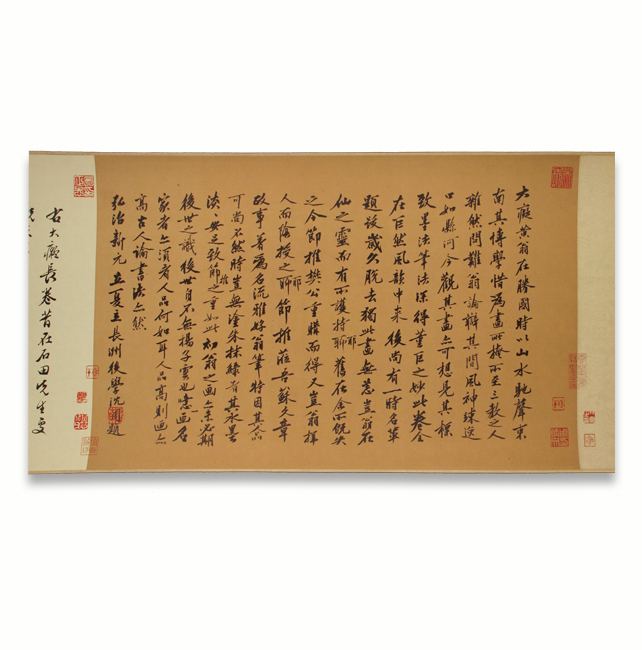 大癡黃翁在勝國時以山水馳聲東
南其博學惜爲畫所掩所至三教之人
雜然問難翁論辯其間風神竦逸
口如懸河今觀其畫亦可想見其標
致墨法筆法深得董巨之妙此卷全
在巨然風韻中來後尚有一時名筆
題跋歲久脫去獨此畫無恙豈翁在
仙之靈而有所護持耶舊在余所既失
之今節推樊公重購而得又豈翁擇
人而陰授之耶節推蒞吾蘇文章
政事著爲名流雅好翁筆特因其人品
可尚不然時豈無塗朱抹綠者其水墨
淡淡安足致節推之重如此初翁之画亦未必期
後世之識後世自不無楊子雲也噫画名
家者亦須看人品何如耳人品高則画亦
高古人論書法亦然
弘治新元立夏長洲後學沈周題
右大癡長卷昔在石田先生處